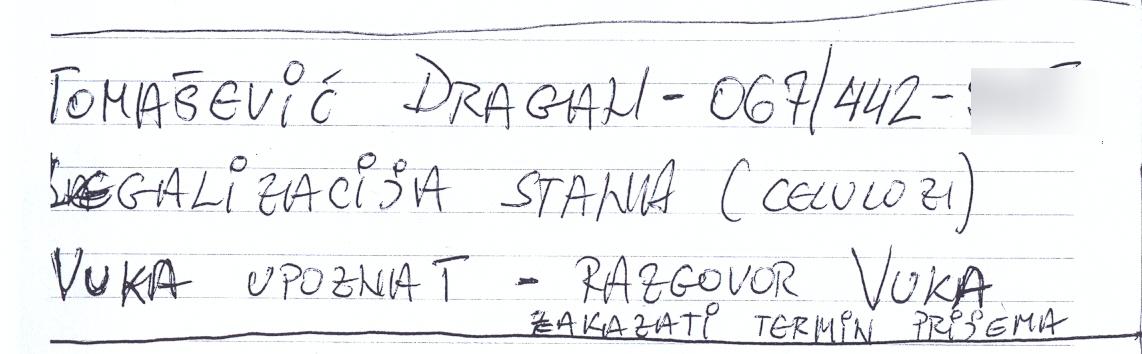 TOMAŠEVIĆ DRAGAN - 067/442-
LEGALIZACIJA STANA (CELULOZI)
VUKA UPOZNAT - RAZGOVOR VUKA
ZAKAZATI TERMIN PRIJEMA